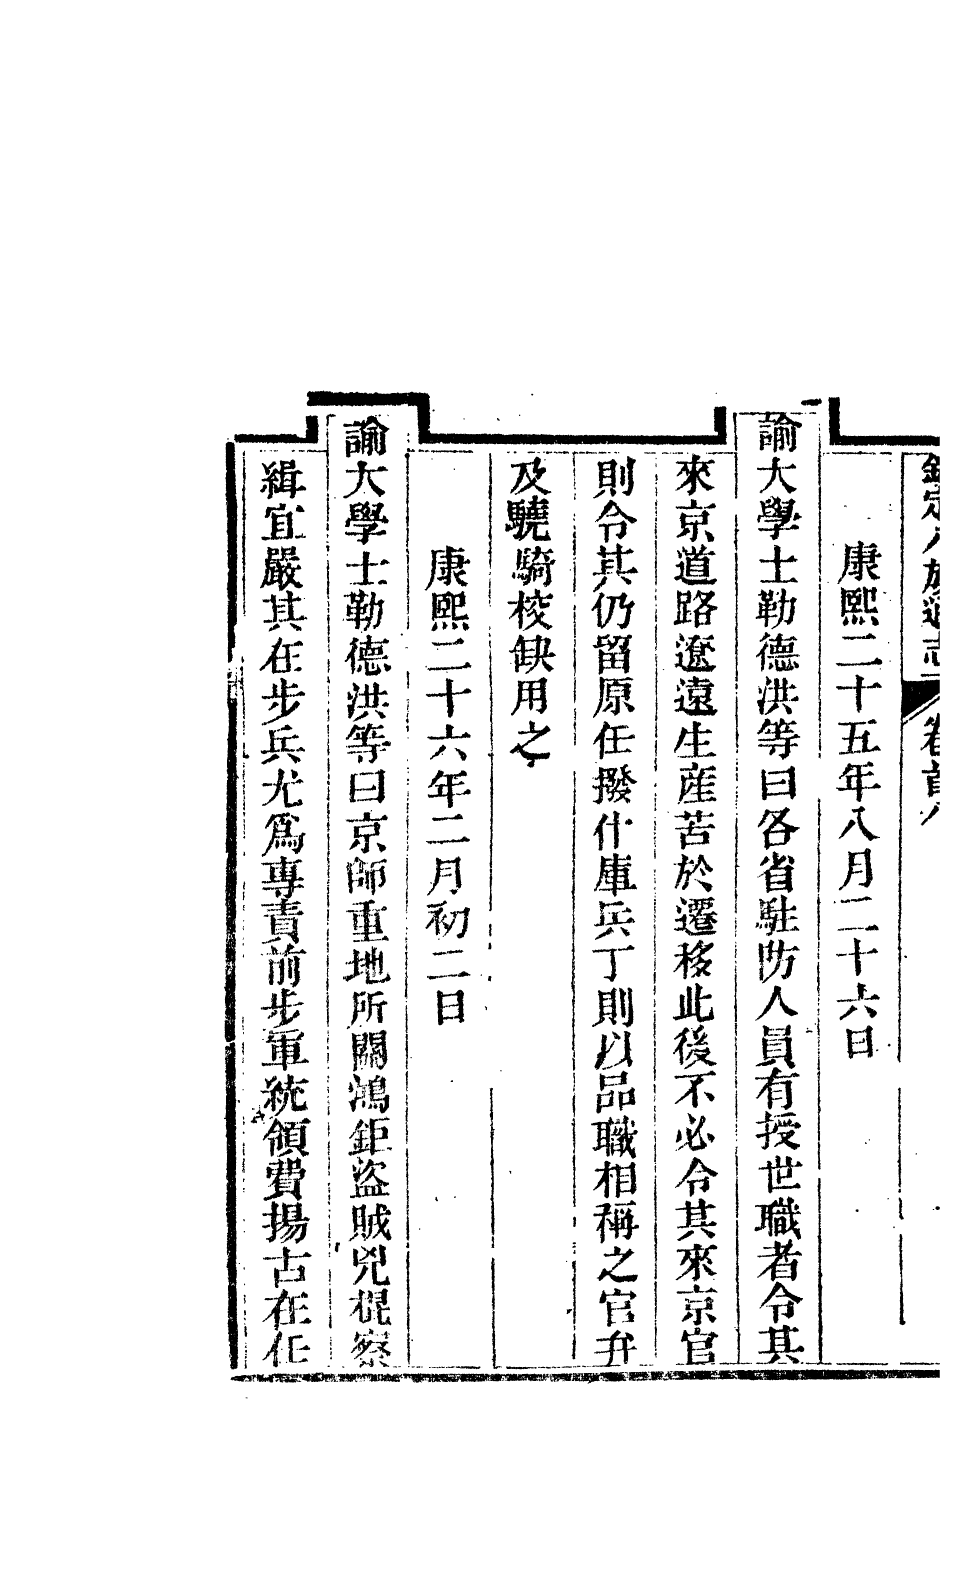 欽定八旗通志 卷首八
康熙二十五年八月二十六日
諭大學士勒德洪等曰各省駐防人員有授世職者令其
來京道路遼遠生産苦於遷移此後不必令其來京官
則令其仍留原任撥什庫兵丁則以品職相稱之官弁
及驍騎校缺用之
康熙二十六年二月初二日
諭大學士勒德洪等曰京師重地所關鴻鉅盜賊兇棍察
緝宜嚴其在步兵尤爲專責前步軍統領費揚古在任